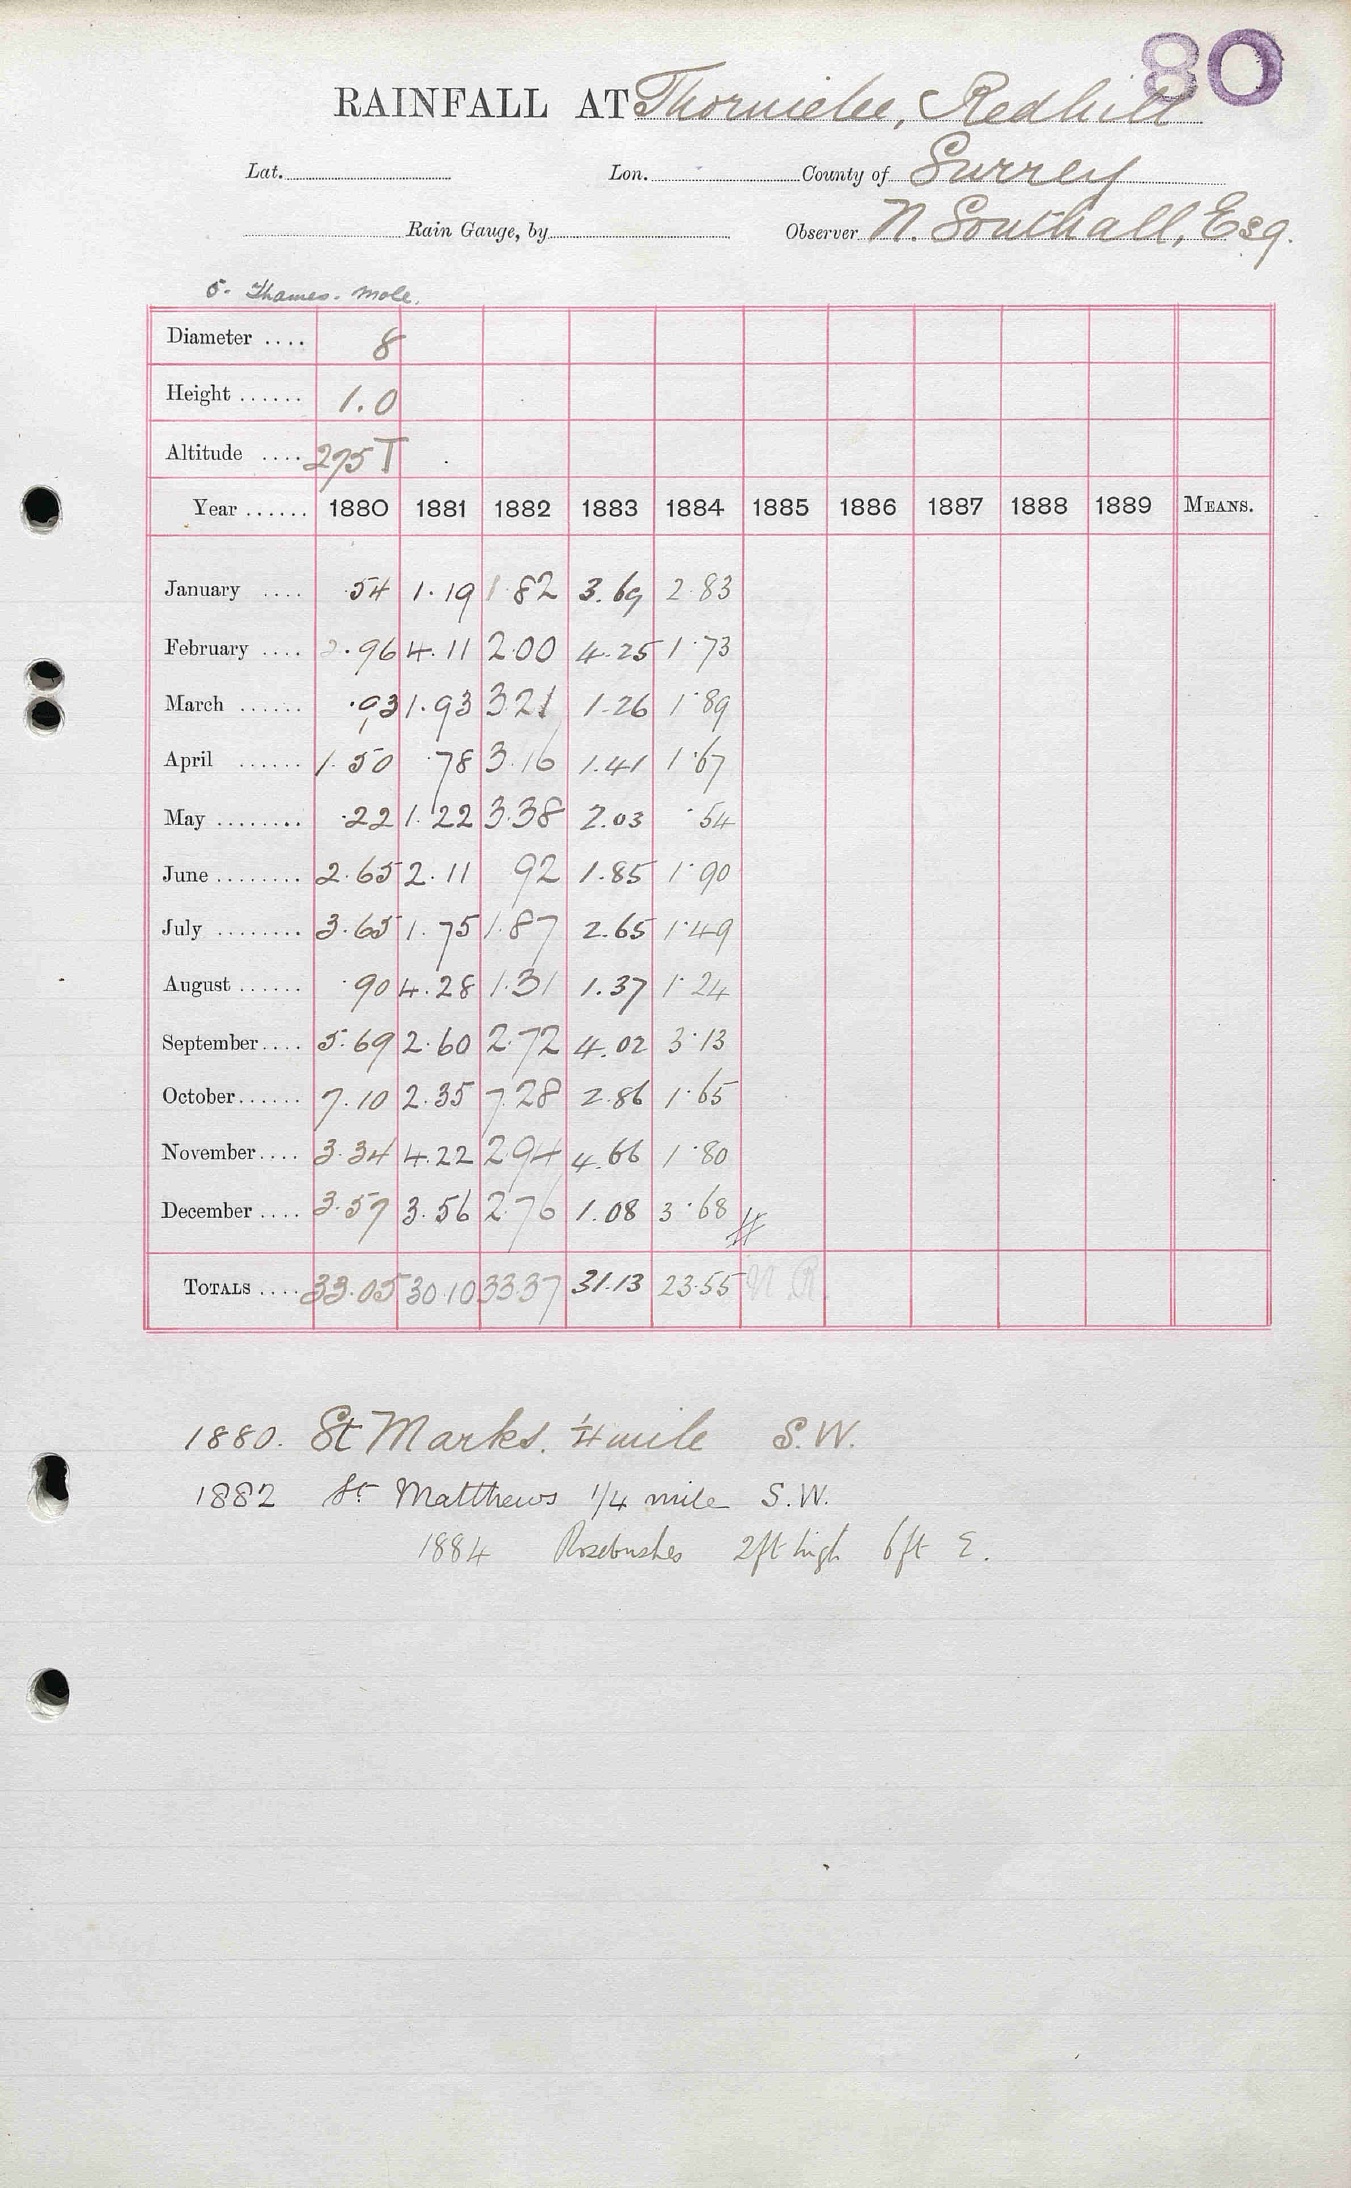 80
RAINFALL AT Thornielee, Redhill
Lat. Lon. County of Surrey
Rain Gauge, by Observer N. Southall, Esq.
5. Thames. Mole.
Diameter .... 8
Height ...... 1.0
Altitude .... 275 T
Year ...... 1880 1881 1882 1883 1884 1885 1886 1887 1888 1889 MEANS.
January .... .54 1.19 1.82 3.69 2.83
February .... 2.96 4.11 2.00 4.25 1.73
March ...... .93 1.93 3.21 1.26 1.89
April ...... 1.50 .78 3.16 1.41 1.67
May ........ .22 1.22 3.38 2.03 .54
June ........ 2.65 2.11 92 1.85 1.90
July ........ 3.65 1.75 1.87 2.65 1.49
August ...... .90 4.28 1.31 1.37 1.24
September .... 5.69 2.60 2.72 4.02 3.13
October ...... 7.10 2.35 7.28 2.86 1.65
November .... 3.34 4.22 2.94 4.66 1.80
December .... 3.57 3.56 2.76 1.08 3.68 #
TOTALS .... 33.05 30.10 33.37 31.13 23.55 N.R.
1880. St Marks. 1/4 mile S.W.
1882 St Matthews 1/4 mile S.W.
1884 Rosebushes 2ft high 6ft E.